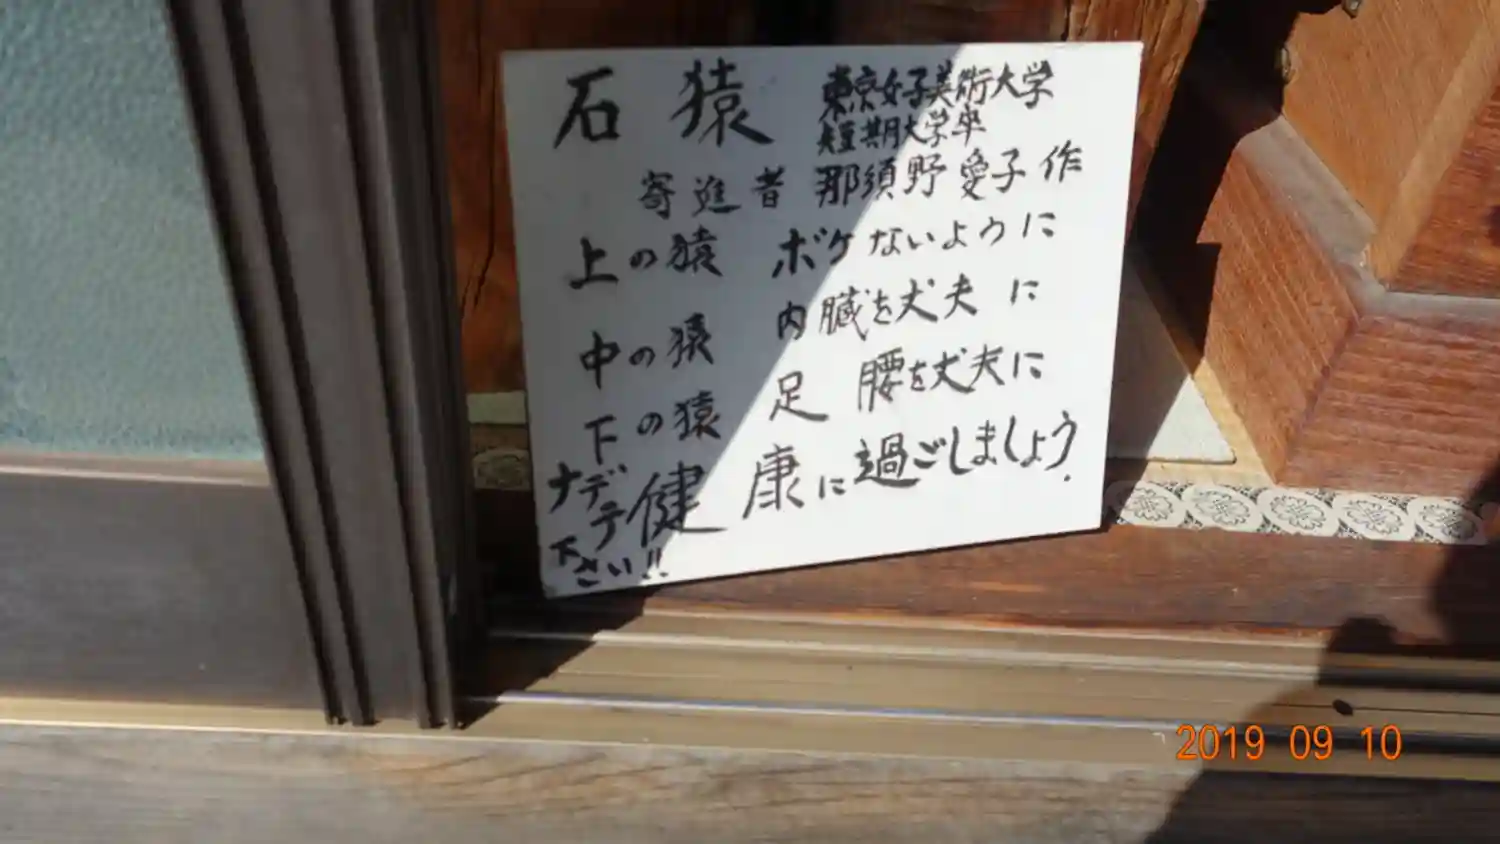 石猿 東京女子美術大学
短期大学卒
寄進者 那須野愛子作
上の猿 ボケないように
中の猿 内臓を丈夫に
下の猿 足腰を丈夫に
ナデテ下さい!!
健康に過ごしましょう.
2019 09 10